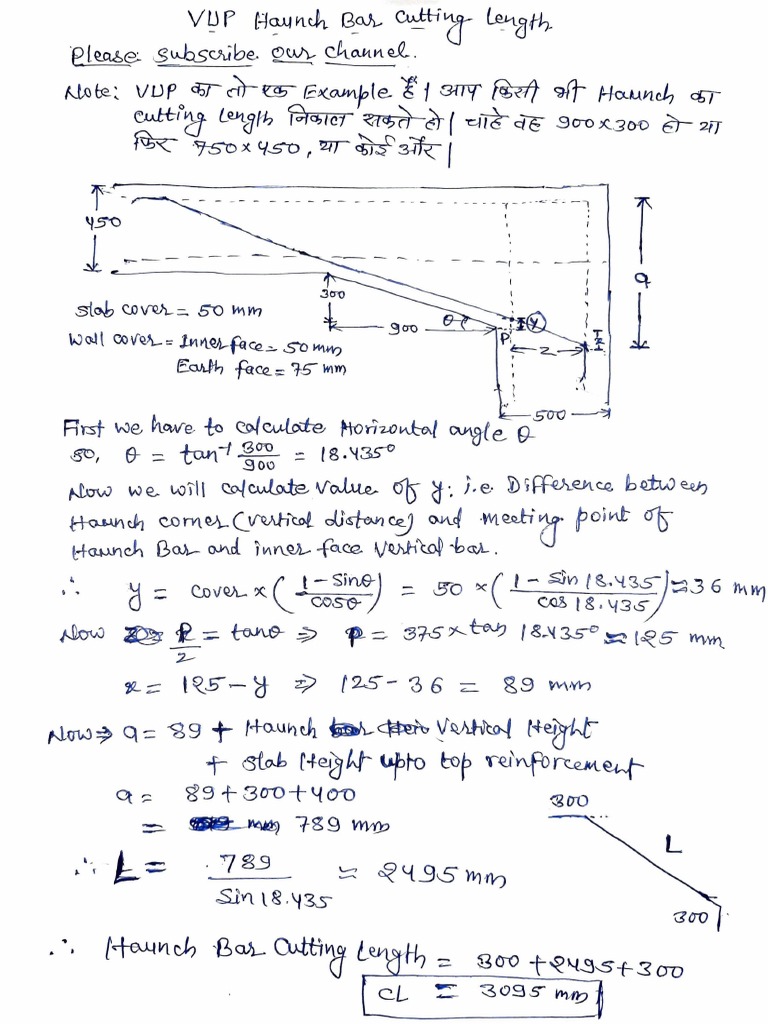 VUP Haunch Bar Cutting Length
Please subscribe our channel.
Note: VUP का तो एक Example है। आप किसी भी Haunch का
Cutting Length निकाल सकते हो। चाहे वह 900×300 हो या
फिर 750×450, या कोई और।
450
a
300
slab cover = 50 mm
900
θ
y
P
z
x
Wall cover = Inner face = 50mm
Earth face = 75 mm
500
First we have to calculate Horizontal angle θ
so, θ = tan⁻¹ 300/900 = 18.435°
Now we will calculate value of y: i.e Difference between
Haunch corner (vertical distance) and meeting point of
Haunch Bar and inner face vertical bar.
∴ y = cover × (1-sinθ/cosθ) = 50 × (1-sin 18.435/cos 18.435) ≈ 36 mm
Now P/z = tanθ ⇒ P = 375 × tan 18.435° ≈ 125 mm
x = 125-y ⇒ 125-36 = 89 mm
Now ⇒ a = 89 + Haunch Vertical Height
+ slab Height upto top reinforcement
a = 89+300+400
= 789 mm
300
L
300
∴ L = 789/Sin 18.435 ≈ 2495 mm
∴ Haunch Bar Cutting Length = 300+2495+300
CL = 3095 mm